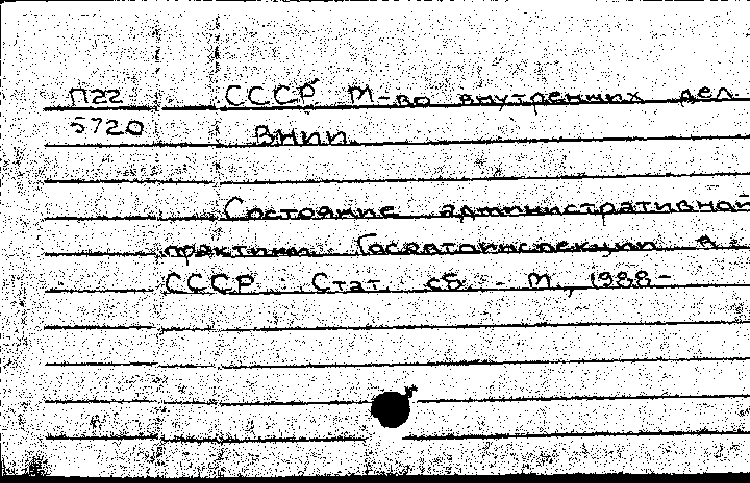 П22 СССР М-во внутренних дел.
5720 ВНИИ.
Состояние административной
практики Госавтоинспекции в
СССР : Стат. сб. - М., 1988-